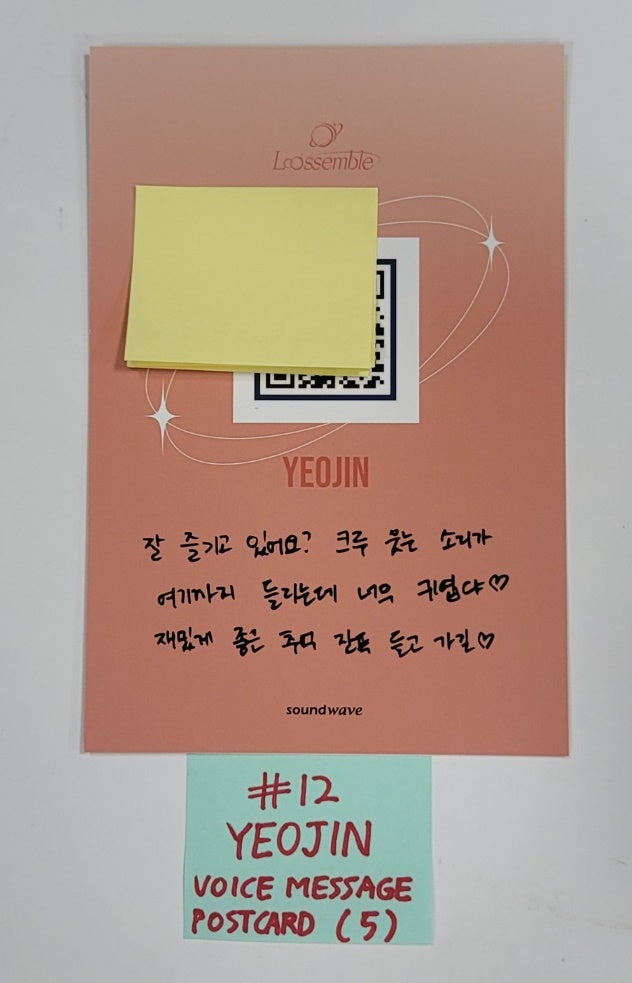 Loossemble
YEOJIN
잘 즐기고 있어요? 크루 웃는 소리가
여기까지 들리는데 너무 귀엽다♡
재밌게 좋은 추억 잔뜩 들고 가길♡
soundwave
#12
YEOJIN
VOICE MESSAGE
POSTCARD (5)